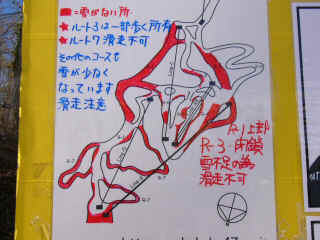 ■=雪がない所
★ルート3は一部歩く所有
★ルート7滑走不可
その他のコースも
雪が少なく
なっています
滑走注意
R-1上部
R-3閉鎖
雪不足の為
滑走不可